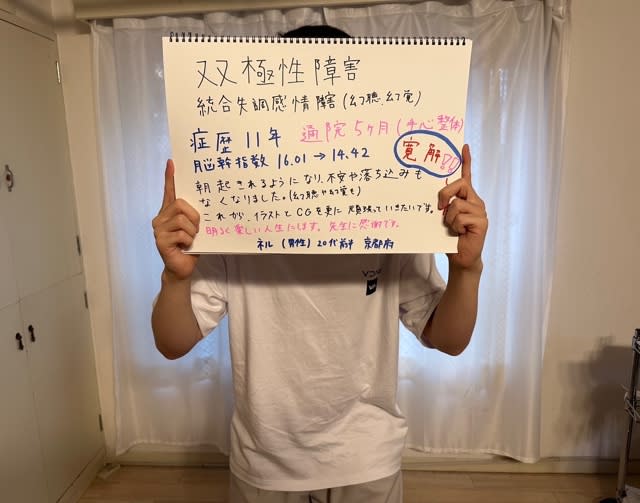 双極性障害
統合失調感情障害(幻聴、幻覚)
症歴 11年 通院5ヶ月(手心整体)
脳幹指数 16.01→14.42 寛解!!
朝起きれるようになり、不安や落ち込みも
なくなりました。(幻聴や幻覚も)
これから、イラストとCGを更に頑張っていきたいです。
明るく楽しい人生にします。先生に感謝です。
ネル(男性)20代前半 京都府